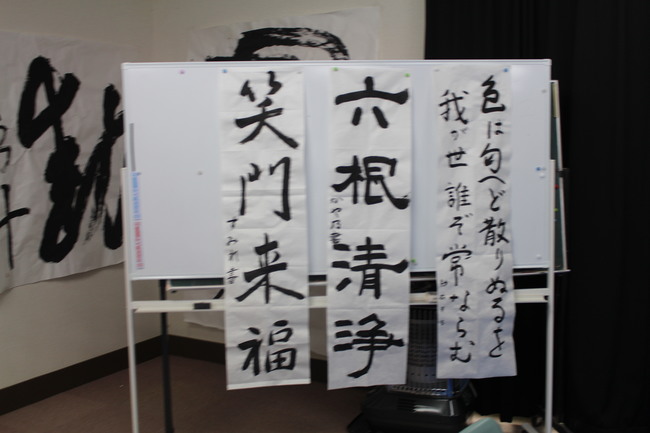 色は匂へど散りぬるを
我が世誰ぞ常ならむ
六根清浄
笑門来福
すみれ書